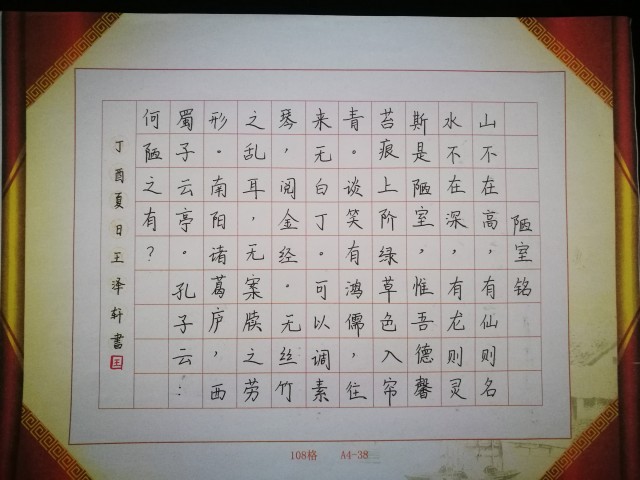 陋室铭
山不在高，有仙则名
水不在深，有龙则灵
斯是陋室，惟吾德馨
苔痕上阶绿草色入帘
青。谈笑有鸿儒，往
来无白丁。可以调素
琴，阅金经。无丝竹
之乱耳，无案牍之劳
形。南阳诸葛庐，西
蜀子云亭。孔子云：
何陋之有？
丁酉夏日王泽轩書
王
108格 A4-38